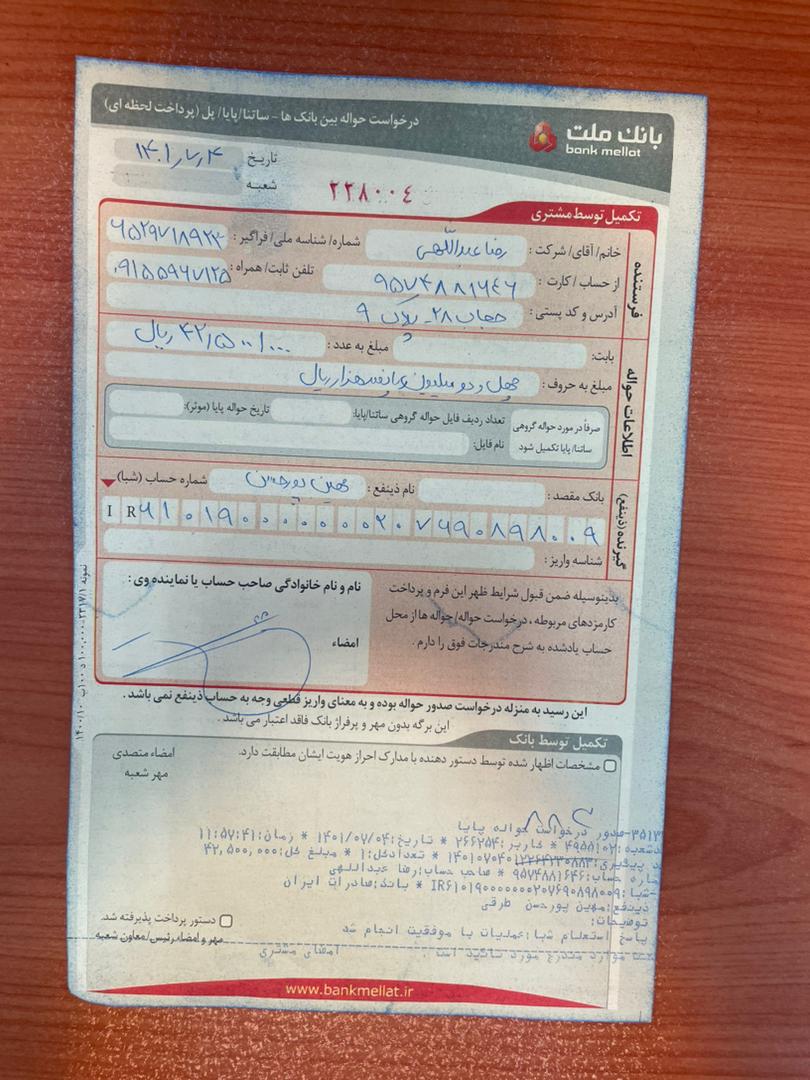 درخواست حواله بین بانک ها - ساتنا/پایا/ پل (پرداخت لحظه ای)
بانک ملت
bank mellat
تاریخ ۱۴۰۱/۷/۴
شعبه :
۲۲۸۰۰۴
تکمیل توسط مشتری
فرستنده
خانم/ آقای/ شرکت : رضا عبداللهی شماره/ شناسه ملی/ فراگیر : ۶۵۲۹۷۱۸۹۲۳
از حساب / کارت : ۹۵۷۴۸۸۱۶۴۶ تلفن ثابت/ همراه : ۰۹۱۵۵۹۶۷۱۲۵
آدرس و کد پستی : حجاب ۲۸ - پلاک ۹
اطلاعات حواله
بابت: مبلغ به عدد : ۴۲٫۵۰۰٫۰۰۰ ریال
مبلغ به حروف : چهل و دو میلیون و پانصد هزار ریال
صرفاً در مورد حواله گروهی ساتنا/ پایا تکمیل شود
تعداد ردیف فایل حواله گروهی ساتنا/پایا: تاریخ حواله پایا (موثر):
نام فایل:
گیرنده (ذینفع)
بانک مقصد : نام ذینفع : مهین پورحسن شماره حساب (شبا)
I R ۶۱۰۱۹۰۰۰۰۰۰۰۰۲۰۷۶۹۰۸۹۸۰۰۹
شناسه واریز :
بدینوسیله ضمن قبول شرایط ظهر این فرم و پرداخت
کارمزدهای مربوطه ، درخواست حواله/ حواله ها از محل
حساب یادشده به شرح مندرجات فوق را دارم .
نام و نام خانوادگی صاحب حساب یا نماینده وی :
امضاء
این رسید به منزله درخواست صدور حواله بوده و به معنای واریز قطعی وجه به حساب ذینفع نمی باشد .
این برگه بدون مهر و پرفراژ بانک فاقد اعتبار می باشد .
تکمیل توسط بانک
مشخصات اظهار شده توسط دستور دهنده با مدارک احراز هویت ایشان مطابقت دارد.
امضاء متصدی
مهر شعبه
صدور درخواست حواله پایا
کاربر:۲۶۶۲۵۴ * تاریخ:۱۴۰۱/۰۷/۰۴ * زمان:۱۱:۵۷:۴۱
* تعدادکل:۱ * مبلغ کل:۴۲,۵۰۰,۰۰۰
حساب:۹۵۷۴۸۸۱۶۴۶ * صاحب حساب:رضا عبداللهی
شبا:IR۶۱۰۱۹۰۰۰۰۰۰۰۰۲۰۷۶۹۰۸۹۸۰۰۹ * بانک:صادرات ایران
ذینفع:مهین پورحسن طرقی
توضیحات:
پاسخ استعلام شبا:عملیات با موفقیت انجام شد
موارد مندرج مورد تائید است . امضای مشتری
دستور پرداخت پذیرفته شد.
مهر و امضاء رئیس/ معاون شعبه
www.bankmellat.ir